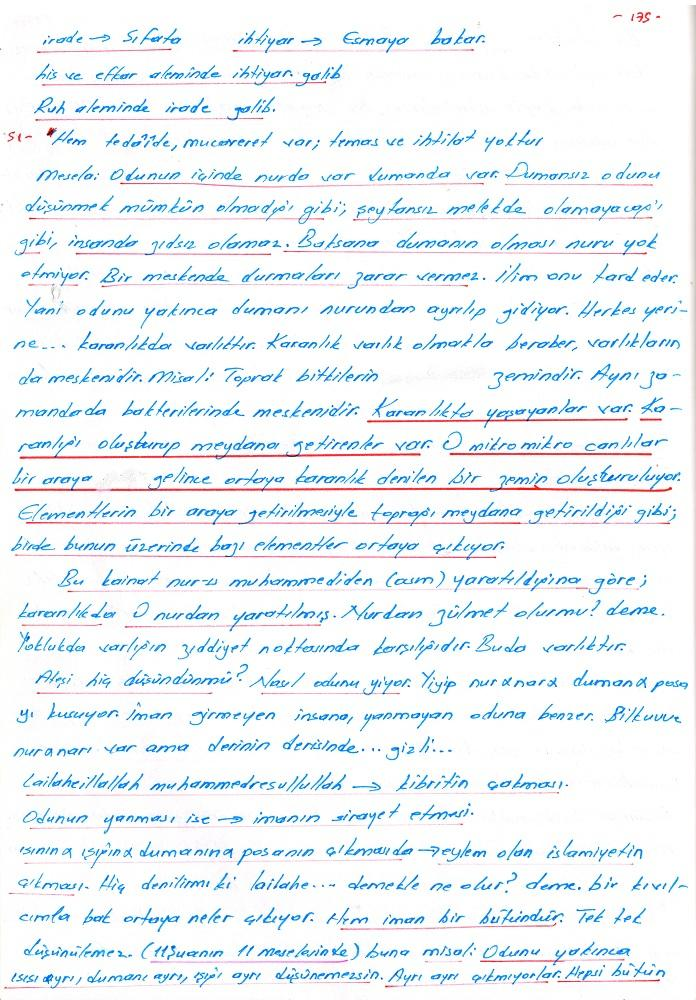 - 175 -
irade → Sıfata ihtiyar → Esmaya bakar.
his ve efkar aleminde ihtiyar galib
Ruh aleminde irade galib.
51- *Hem tedaîde, mucaveret var; temas ve ihtilat yoktur
Mesela: Odunun içinde nurda var dumanda var. Dumansız odunu
düşünmek mümkün olmadığı gibi; şeytansız melekde olamayacağı
gibi, insanda zıdsız olamaz. Baksana dumanın olması nuru yok
etmiyor. Bir meskende durmaları zarar vermez. İlim onu tard eder.
Yani odunu yakınca dumanı nurundan ayrılıp gidiyor. Herkes yeri-
ne... karanlıkda varlıktır. Karanlık varlık olmakla beraber, varlıkların
da meskenidir. Misal: Toprak bitkilerin zemindir. Aynı za-
mandada bakterilerinde meskenidir. Karanlıkta yaşayanlar var. Ka-
ranlığı oluşturup meydana getirenler var. O mikromikro canlılar
bir araya gelince ortaya karanlık denilen bir zemin oluşturuluyor.
Elementlerin bir araya getirilmesiyle toprağı meydana getirildiği gibi;
birde bunun üzerinde bazı elementler ortaya çıkıyor.
Bu kainat nur-u muhammediden (asm) yaratıldığına göre;
karanlıkda O nurdan yaratılmış. Nurdan zülmet olurmu? deme.
Yoklukda varlığın zıddiyet noktasında karşılığıdır. Buda varlıktır.
Ateşi hiç düşündünmü? Nasıl odunu yiyor. Yiyip nurαnarα dumanα posa
yı kusuyor. İman girmeyen insana, yanmayan oduna benzer. Bilkuvve
nurαnarı var ama derinin derisinde... gizli...
Lailaheillallah muhammedresullullah → kibritin çakması.
Odunun yanması ise → imanın sirayet etmesi.
ısınınα ışığınα dumanına posanın çıkmasıda → eylem olan islamiyetin
çıkması. Hiç denilirmi ki lailahe... demekle ne olur? deme. bir kıvıl-
cımla bak ortaya neler çıkıyor. Hem iman bir bütündür. Tek tek
düşünülemez. (11Şuanın 11 meselesinde) buna misal: Odunu yakınca
ısısı ayrı, dumanı ayrı, ışığı ayrı düşünemezsin. Ayrı ayrı çıkmıyorlar. Hepsi bütün